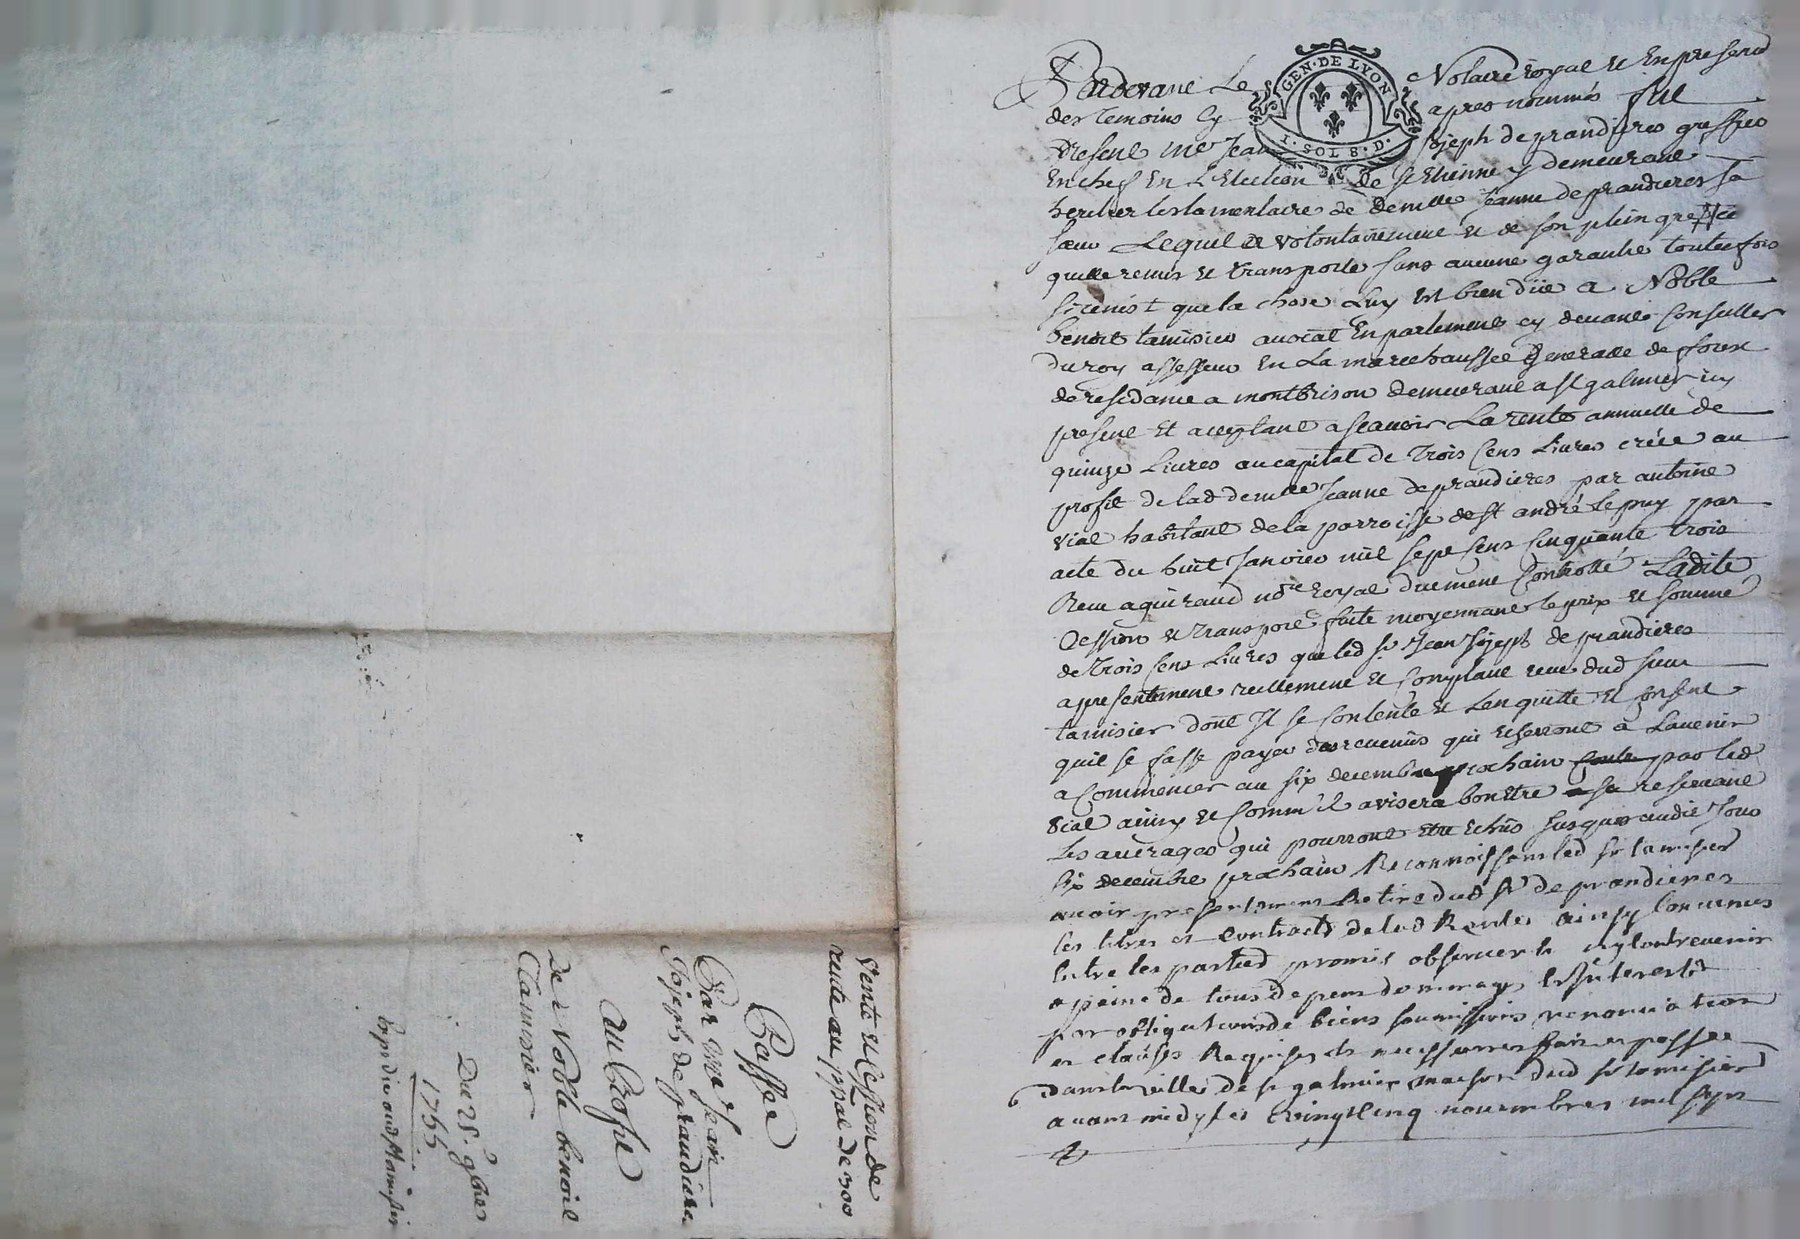 GEN·DE LYON
1·SOL 8·D·
Pardevant Le Notaire royal et En presence
des temoins Cy apres nommés fut
Present me Jean Jojeph de prandieres greffier
En chef En L'Election de st Etienne y demeurant
heritier testamentaire de demlle Jeanne de prandieres sa
sœur Lequel de volontairement et de son plein gre
quitte remis et transporte sans aucune garantie toutes fois
que la chose Luy est bien düe a Noble
benoit tamisier avocat En parlement cy devant Conseiller
du roy assesseur En La marechaussée generalle de forest
de residance a montbrison demeurant a st galmier icy
present Et aceptant a scavoir La rente annuelle de
quinze Livres au capital de trois Cens Livres créée au
profit de lad demlle Jeanne de prandieres par antoine
vial habitant de la parroisse de st andré le puy par
acte du huit Janvier mil sept Cens Cinquante trois
Receu aquiraud nore royal düement Controllé Ladite
Cession et transport faite moyennant le prix et somme
de trois Cens Livres que led sr Jean Jojeph de prandieres
a presentement reellement et Comptant receu dud sieur
tamisier dont Il se Contente et L'en quitte et Consent
quil se fasse payer des revenus qui echerront a Lavenir
a Commencer au six decembre prochain par led
vial ainsy et Comm'il avisera bon Etre se reservant
Les arrerages qui pourront etre Echüs Jusques audit Jour
six decembre prochain Reconnoissant led sr tamisier
avoir presentement Retiré dud sr de prandieres
les titres et Contracts de lad Rente ainsy Convenus
Entre les parties promis observer et ny Contrevenir
a peine de tous depens dommages et Interests
par obligations de biens soumissions renonciations
et clauses Requises et necessaires fait et passé
dans la ville de st galmier maison dud sr tamisier
avant midy les vingt cinq novembre mil sept
Vente et Cession de
rente au ppal de 300
Passée
Par Me Jean
Jojeph de prandiere
Au Profit
De Noble benoit
Tamisier
Du 25 9bre
1755
Expedié aud st tamisier